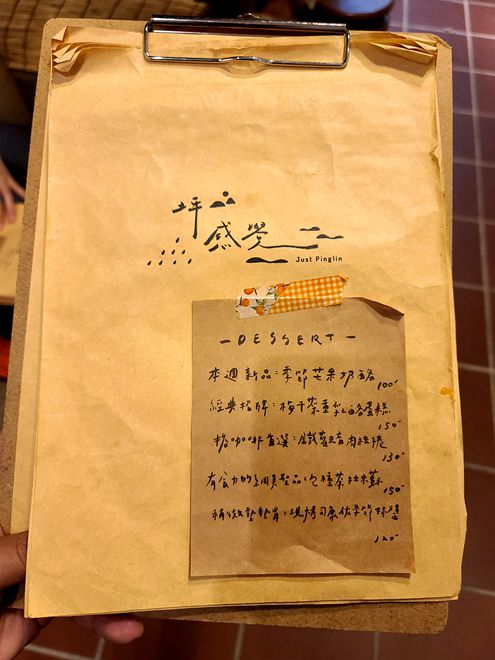 坪
感覺
Just Pinglin
- DESSERT -
本週新品：季節芒果奶酪
100
經典招牌：梅干菜重乳酪蛋糕
150
搭咖啡首選：鐵觀音肉桂捲
130
有食力的細美聖品：包種茶提拉米蘇
150
稍微墊墊胃：現烤司康佐季節抹醬
120